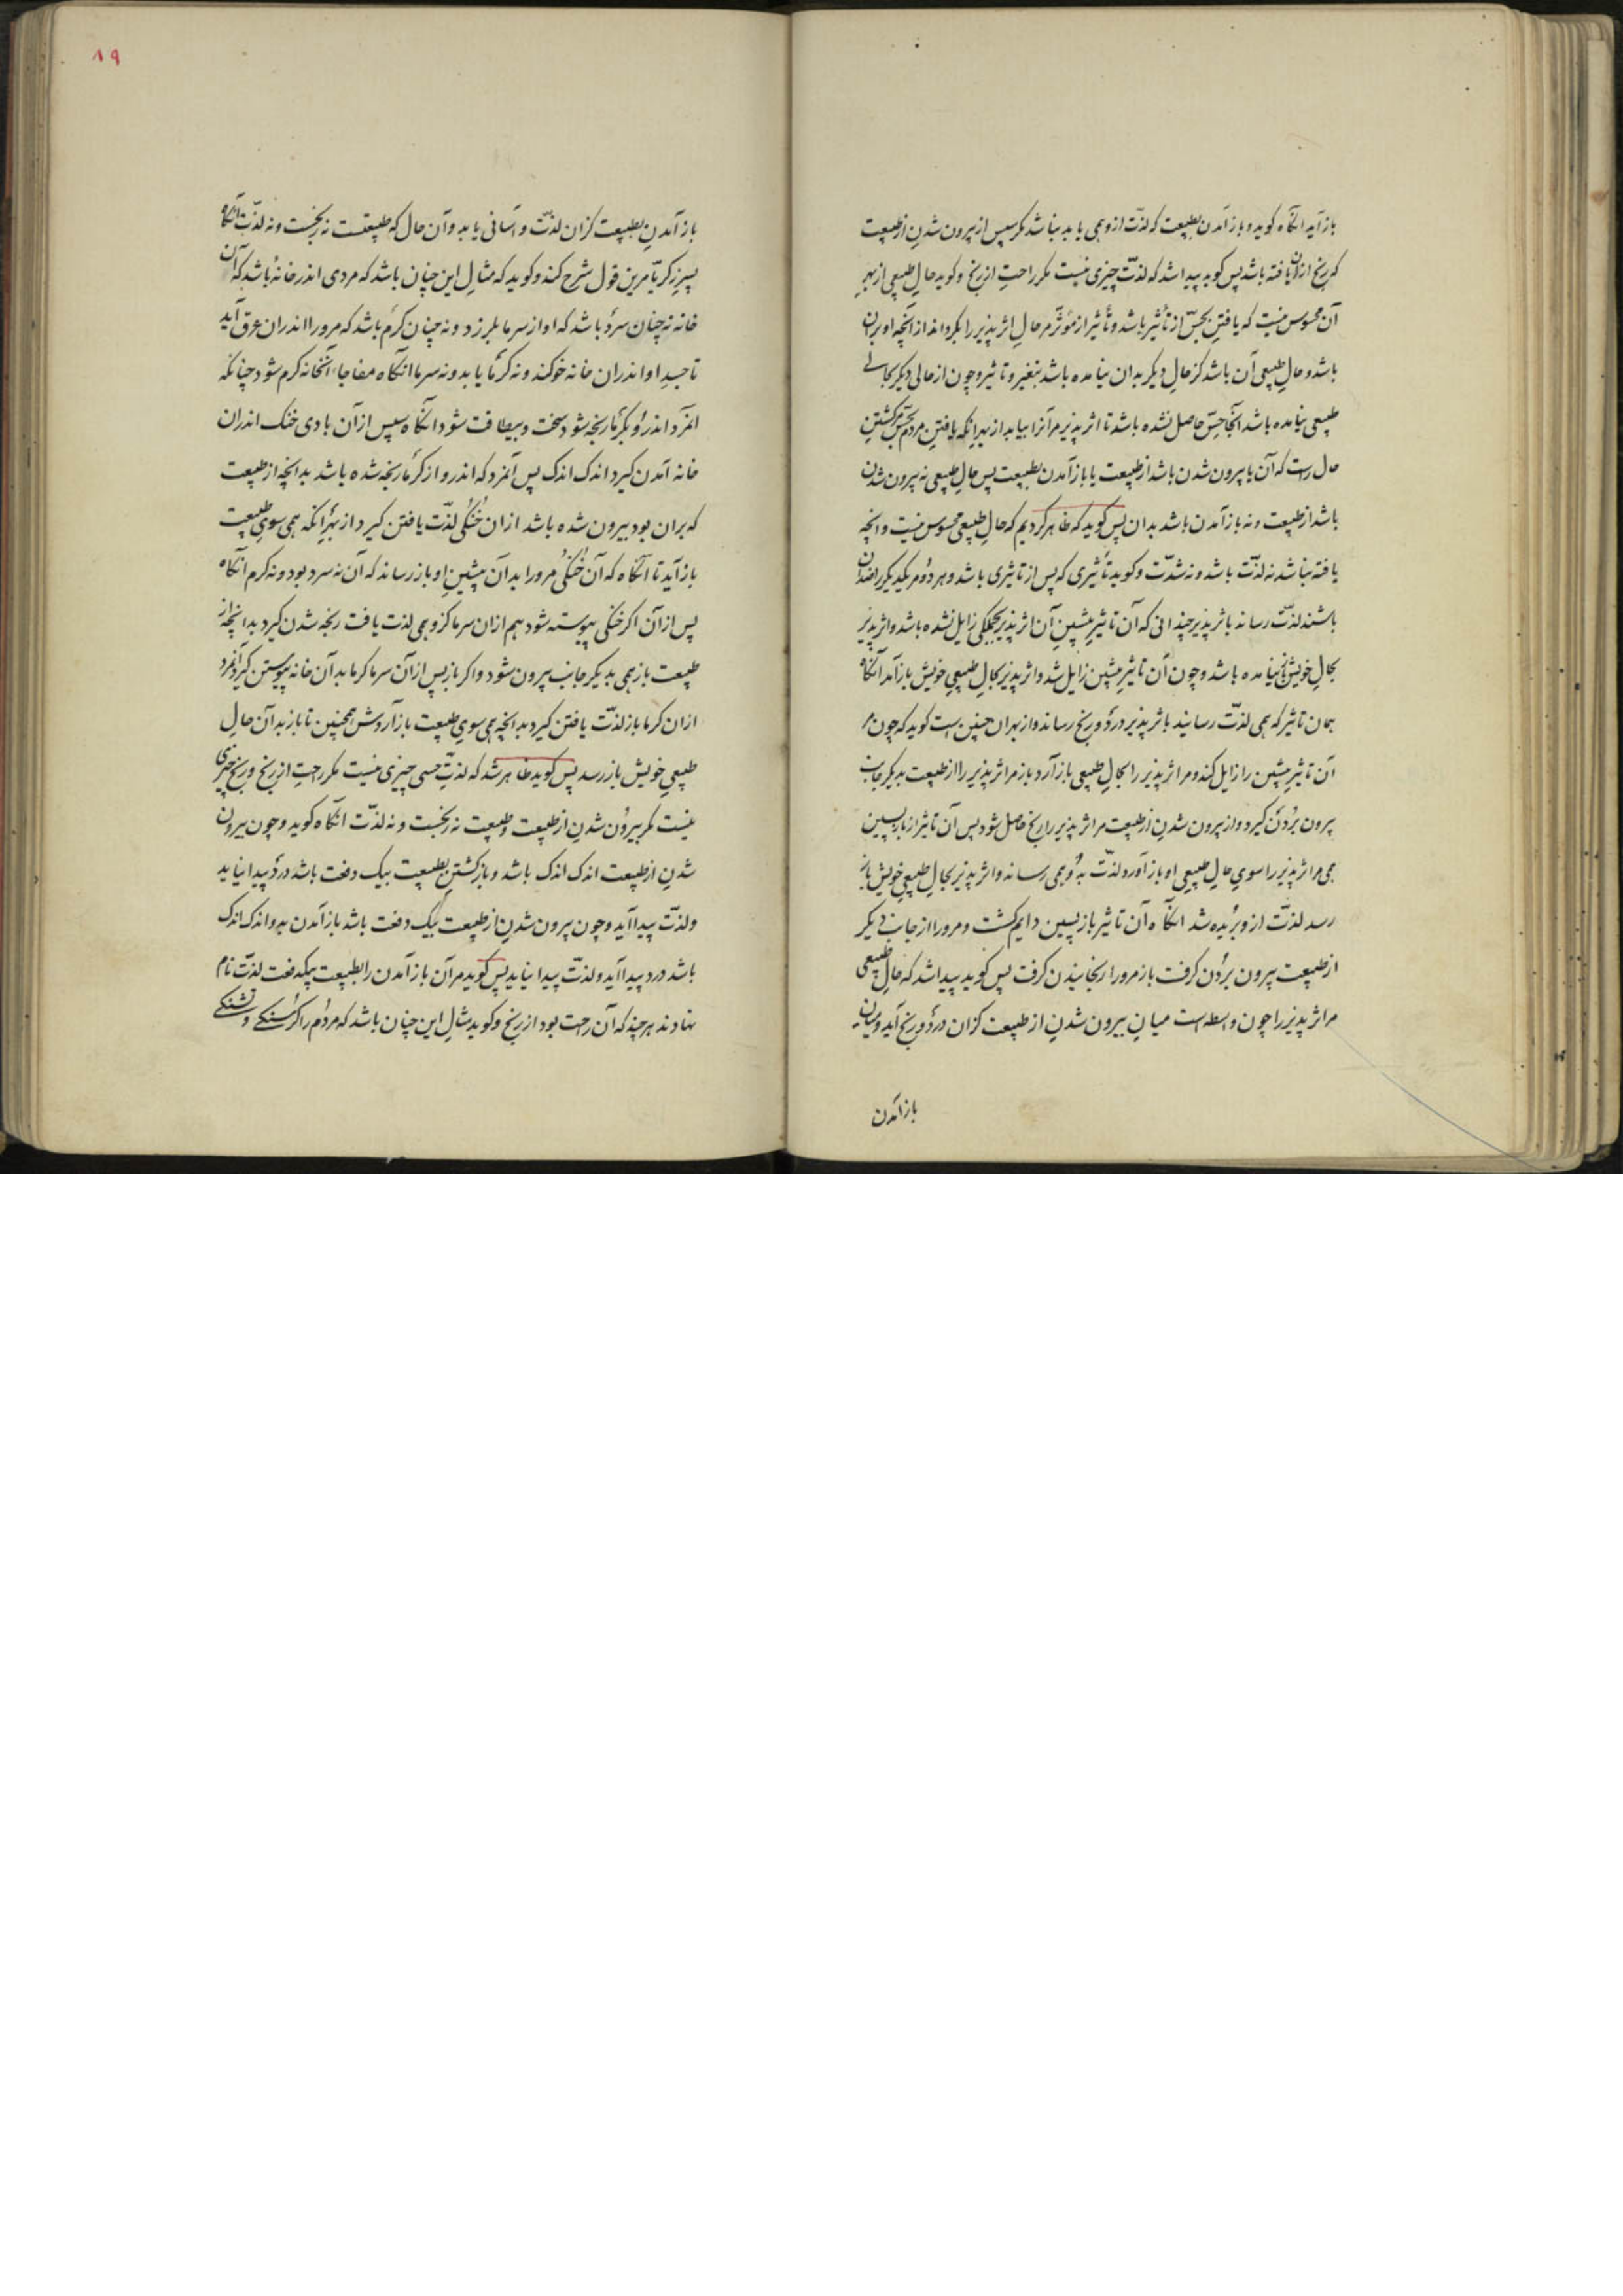 باز آید آنگاه کوید و باز آمدن بطبیعت که لذّت ازو همی یابد نباشد مکر سپس از بیرون شدنِ از طبیعت
که رنج ازان یافته باشد پس کوید پیدا شد که لذّت چیزی نیست مکر راحت از رنج و کوید حالِ طبیعی از بهرِ
آن محسوس نیست که یافتنِ بحسّ از تأثیر باشد و تأثیر از مؤثّر مر حالِ اثر پذیر را بکرداند از آنچه او بران
باشد و حالِ طبیعی آن باشد کز حالِ دیکر بدان نیامده باشد بتغیر و تاثیر و چون از حالی دیکر بحالی
طبیعی نیامده باشد آنجا حسّ حاصل نشده باشد تا اثر پذیر مر آنرا بیابد از بهرِ انکه یافتنِ مردم بحسّ مر کشتنِ
حال راست که آن یا بیرون شدن باشد از طبیعت یا باز آمدن بطبیعت پس حالِ طبیعی نه بیرون شدن
باشد از طبیعت و نه باز آمدن باشد بدان پس کوید که ظاهر کردیم که حالِ طبیعی محسوس نیست و انچه
یافته نباشد نه لذّت باشد و نه شدّت و کوید تأثیری که پس از تاثیری باشد و هر دو مر یکدیکر را ضدان
باشند لذّت رساند باثر پذیر چندانی که آن تاثیرِ پیشینِ آن اثر پذیر بجملکی زایل نشده باشد و اثر پذیر
بحالِ خویش باز نیامده باشد و چون آن تاثیرِ پیشین زایل شد و اثر پذیر بحالِ طبیعی خویش باز آمد آنگاه
همان تاثیر که همی لذّت رسانید باثر پذیر درد و رنج رساند و از بهر ان چنین است کوید که چون مر
آن تاثیرِ پیشین را زایل کند و مر اثر پذیر را بحالِ طبیعی باز آرد باز مر اثر پذیر را از طبیعت بدیکر جانب
بیرون بُردن کیرد و از بیرون شدن از طبیعت مر اثر پذیر را رنج حاصل شود پس آن تاثیر از بازپسین
همی مر اثر پذیر را سویِ حالِ طبیعی او باز آورد لذّت بدو همی رساند و اثر پذیر بحالِ طبیعیِ خویش باز
رسد لذّت ازو بریده شد انگاه آن تاثیر باز پسین دایم کشت و مرورا از جانب دیکر
از طبیعت بیرون بردن کرفت باز مرورا رنجانیدن کرفت پس کوید پیدا شد که حالِ طبیعی
مر اثر پذیر را چون واسطه است میانِ بیرون شدنِ از طبیعت کزان درد و رنج آید و میانِ
باز آمدن
۸۹
باز آمدنِ بطبیعت کزان لذّت و آسانی یابد و آن حال که طبیعتست نه رنجست و نه لذّت آنگاه
پسرِ زکریّا مرین قول شرح کند و کوید که مثالِ این چنان باشد که مردی اندر خانهٔ باشد که آن
خانه نه چنان سرد باشد که او از سرما بلرزد و نه چنان کرم باشد که مرورا اندران عرق آید
تا جسدِ او اندران خانه خو کند و نه کرما یابد و نه سرما انگاه مفاجا آنخانه کرم شود چنانکه
آنمرد اندرو بکرما رنجه شود سخت و بیطاقت شود انگاه سپس از آن بادی خنک اندران
خانه آمدن کیرد اندک اندک پس آنمرد که اندرو از کرما رنجه شده باشد بدانچه از طبیعت
که بران بود بیرون شده باشد ازان خُنکی لذّت یافتن کیرد از بهرِ انکه همی سویِ طبیعت
باز آید تا آنگاه که آن خُنکی مرورا بدان پیشینِ او باز رساند که آن نه سرد بود و نه کرم آنگاه
پس از آن اکر خنکی پیوسته شود هم ازان سرما کزو همی لذت یافت رنجه شدن کیرد بدانچه از
طبیعت باز همی بدیکر جانب بیرون شود و اکر باز پس از آن سرما کرما بدان خانه پیوستن کیرد آنمرد
ازان کرما باز لذّت یافتن کیرد بدانچه همی سویِ طبیعت باز آردش همچنین تا باز بدان حالِ
طبیعیِ خویش باز رسد پس کوید ظاهر شد که لذّتِ حسی چیزی نیست مکر راحت از رنج و رنج چیزی
نیست مکر بیرون شدنِ از طبیعت و طبیعت نه رنجست و نه لذّت انگاه کوید و چون بیرون
شدنِ از طبیعت اندک اندک باشد و باز کشتنِ بطبیعت بیک دفعت باشد درد پیدا نیاید
و لذّت پیدا آید و چون بیرون شدنِ از طبیعت بیک دفعت باشد باز آمدن بدو اندک اندک
باشد درد پیدا آید و لذّت پیدا نیاید پس کوید مر آن باز آمدن را بطبیعت بیکدفعت لذّت نام
نهادند هر چند که آن راحت بود از رنج و کوید مثالِ این چنان باشد که مردم را کرسنکی و تشنکی